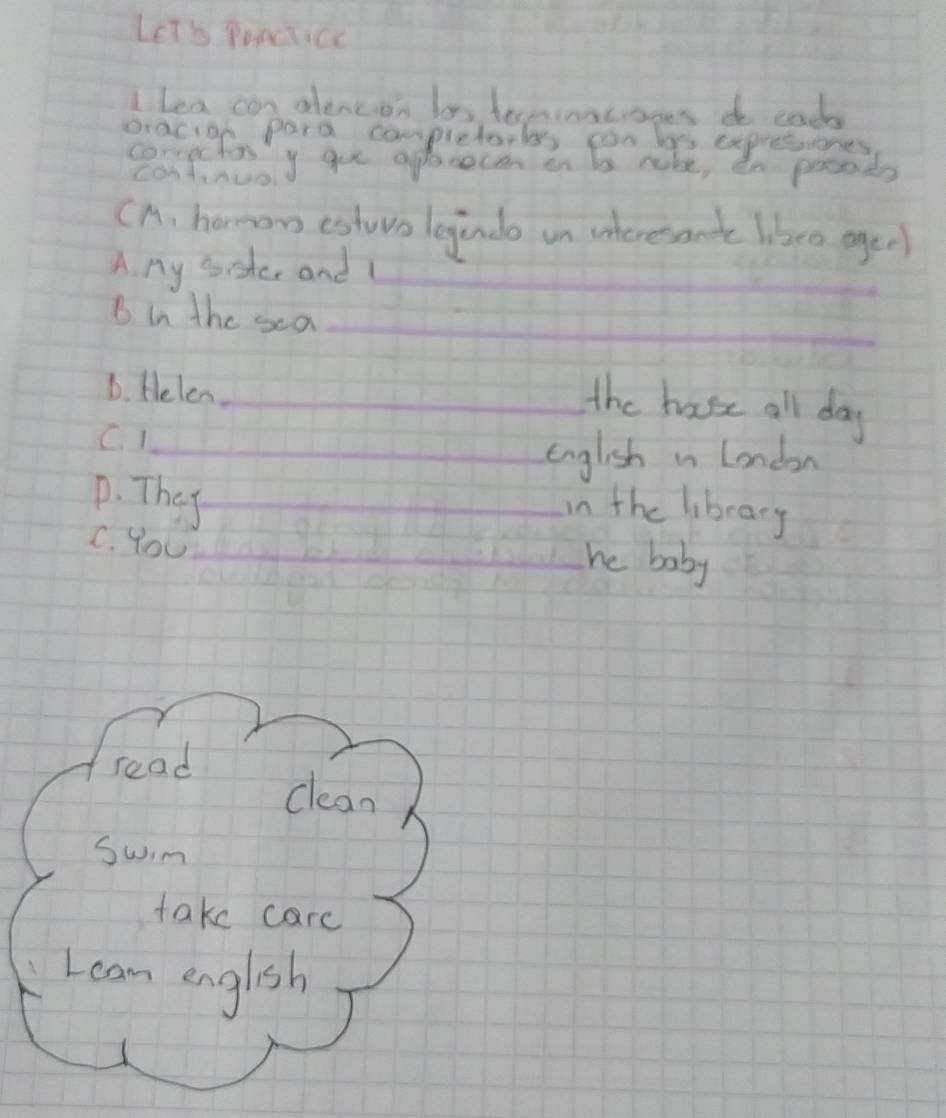 LET'S Practice
1. Lea con atención las terminaciones de cada
oración para completarlas con las expresiones
correctas y que aparecen en la nube, en pasado
continuo.
(Mi hermano estuvo leyendo un interesante libro ayer)
A. My sister and I
B In the sea
D. Helen the house all day
C. I English in London
D. They in the library
C. You he baby
read
Clean
Swim
take care
Learn english